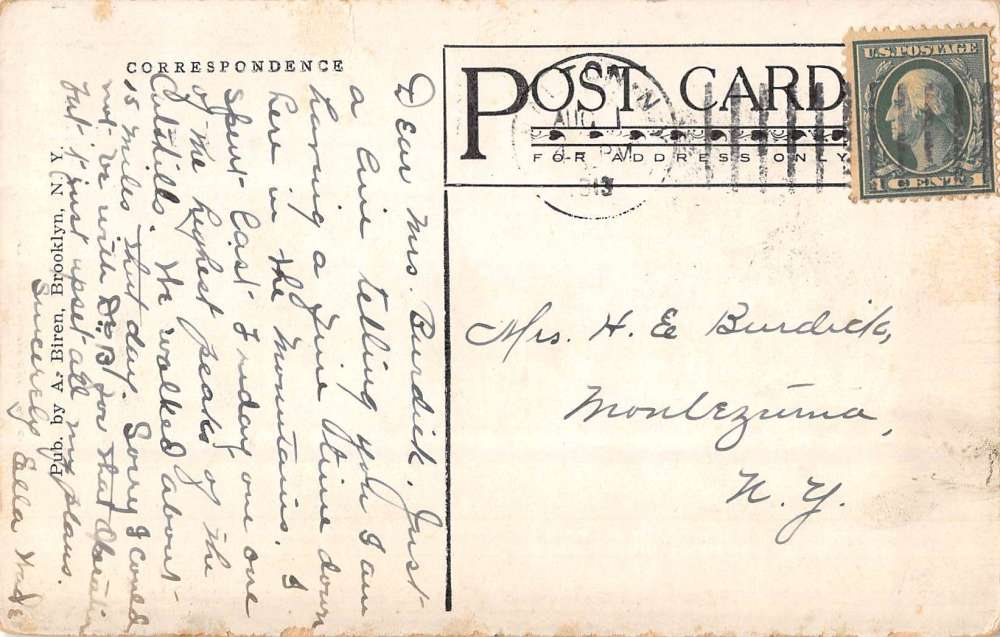 CORRESPONDENCE
POST CARD
FOR ADDRESS ONLY
U.S. POSTAGE
1 CENT 1
AUG
PM
1913
Dear Mrs. Burdick. Just
a line telling you I am
having a fine time down
here in the mountains. I
spent last Friday on one
of the highest peaks of the
Catskills. We walked about
15 miles that day. Sorry I could
not be with Dr. B for that
but it just upset all my plans.
Sincerely
Ella
Mrs. H. E Burdick,
Montezuma,
N. Y.
Pub. by A. Biren, Brooklyn, N. Y